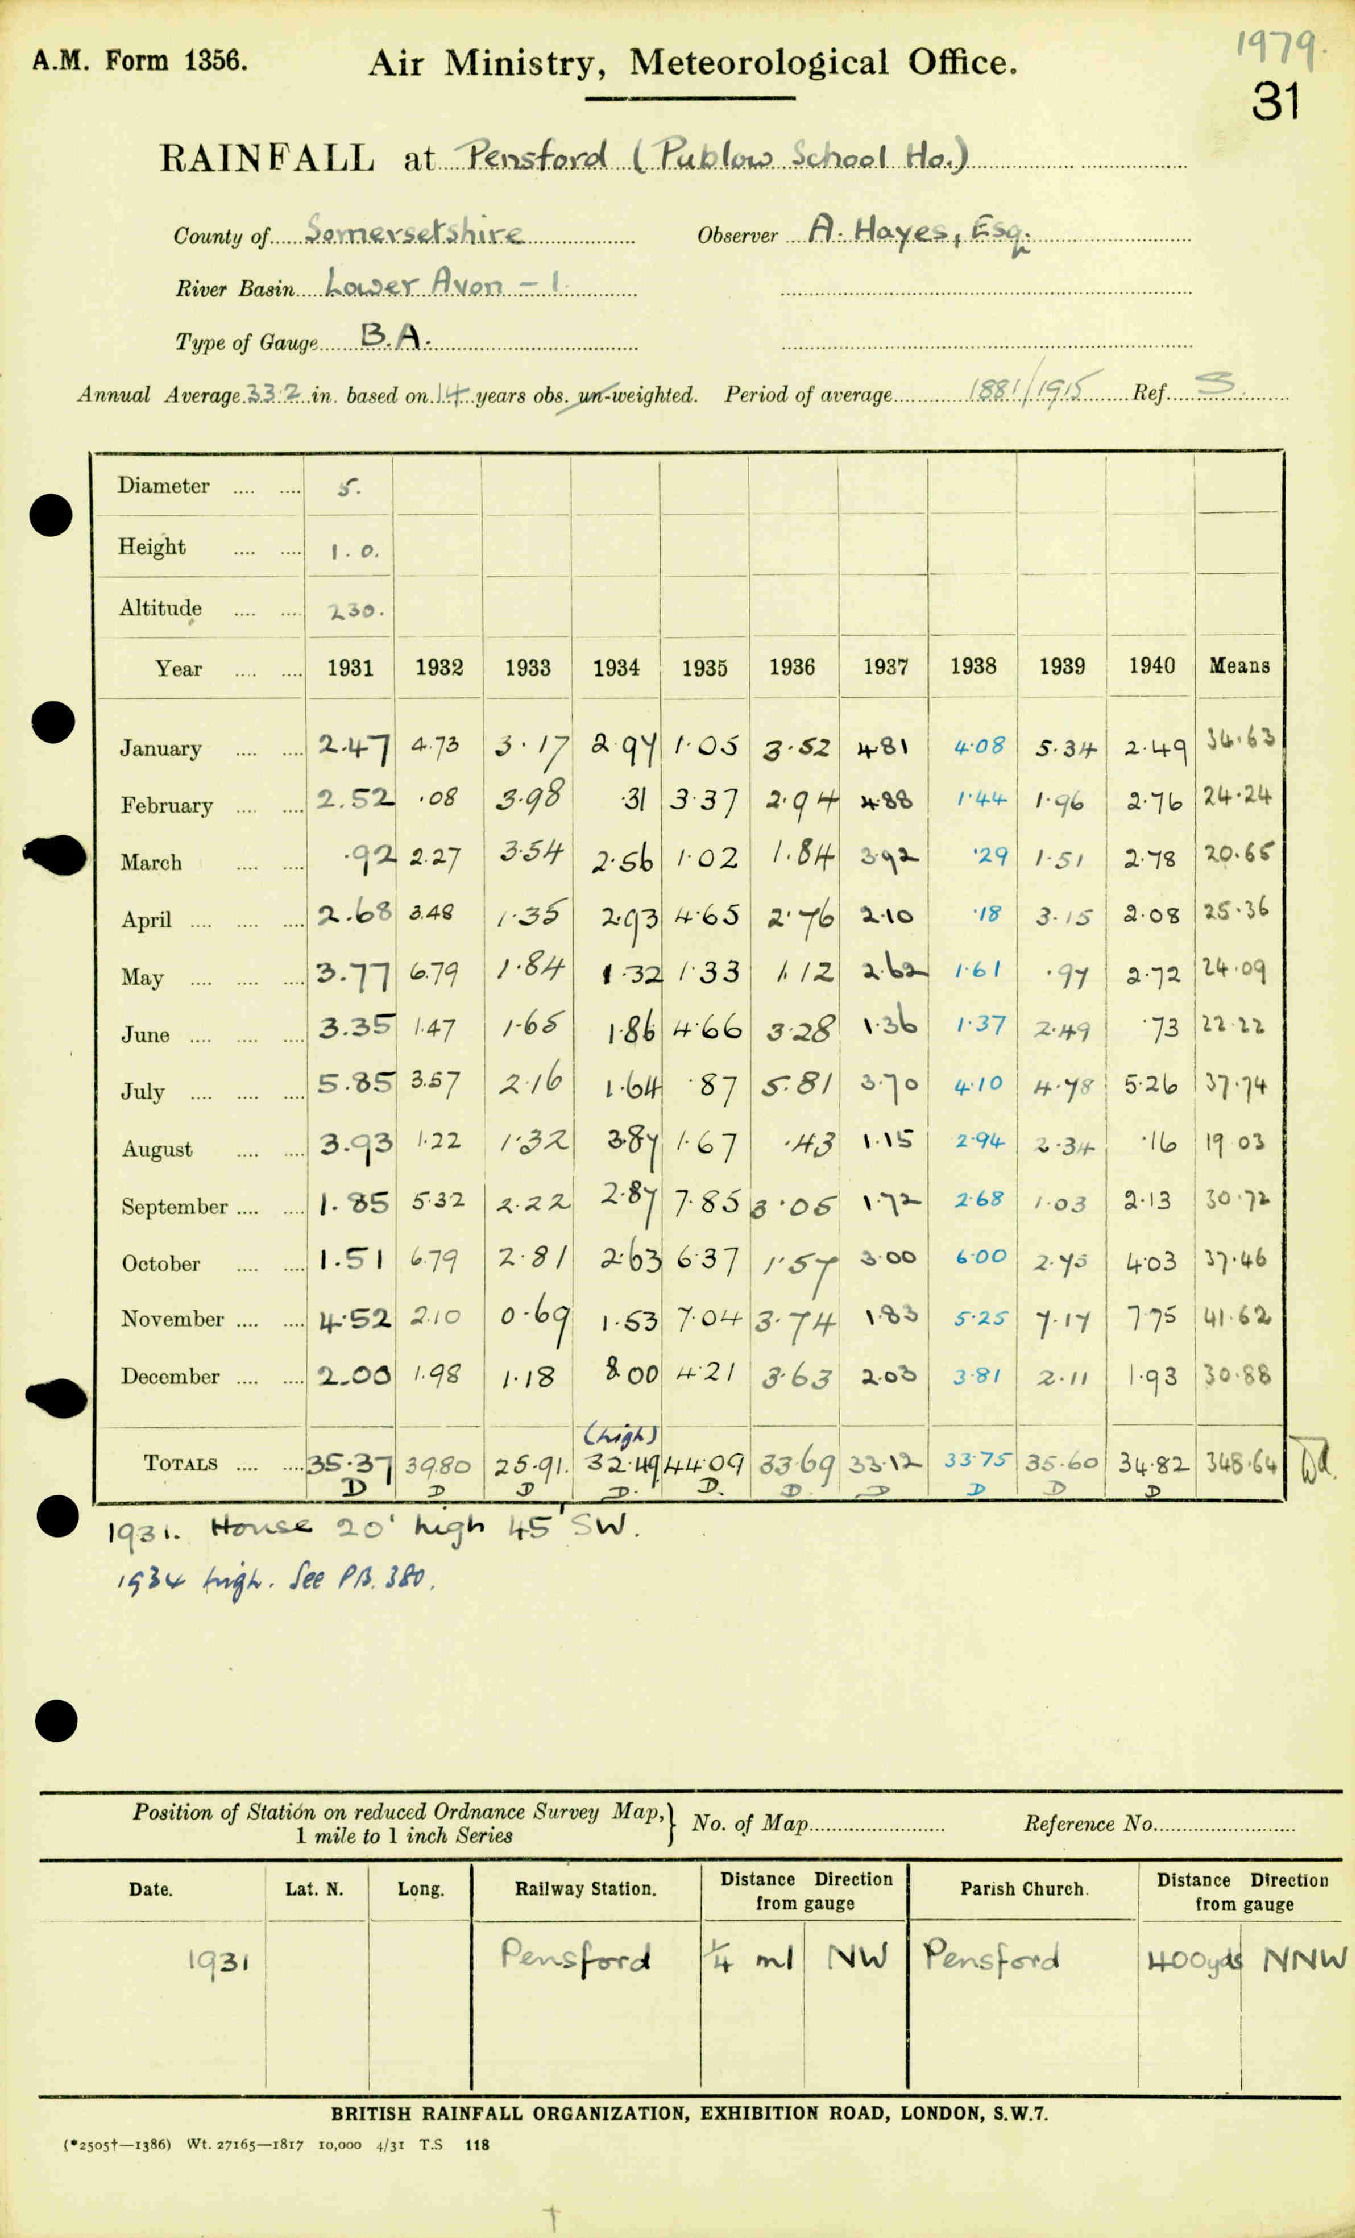 1979.
A.M. Form 1356. Air Ministry, Meteorological Office.
31
RAINFALL at Pensford (Publow School Ho.)
County of Somersetshire Observer A. Hayes, Esq.
River Basin Lower Avon - 1
Type of Gauge B.A.
Annual Average 33.2 in. based on 14 years obs. un-weighted. Period of average 1881/1915 Ref. S.
Diameter .... .... 5.
Height .... .... 1.0.
Altitude .... .... 230.
Year .... .... 1931 1932 1933 1934 1935 1936 1937 1938 1939 1940 Means
January .... .... 2.47 4.73 3.17 2.97 1.05 3.52 4.81 4.08 5.34 2.49 34.63
February .... .... 2.52 .08 3.98 .31 3.37 2.94 4.88 1.44 1.96 2.76 24.24
March .... .... .92 2.27 3.54 2.56 1.02 1.84 3.92 .29 1.51 2.78 20.65
April .... .... .... 2.68 3.48 1.35 2.93 4.65 2.76 2.10 .18 3.15 2.08 25.36
May .... .... .... 3.77 6.79 1.84 1.32 1.33 1.12 2.62 1.61 .97 2.72 24.09
June .... .... .... 3.35 1.47 1.65 1.86 4.66 3.28 1.36 1.37 2.49 .73 22.22
July .... .... .... 5.85 3.57 2.16 1.64 .87 5.81 3.70 4.10 4.78 5.26 37.74
August .... .... 3.93 1.22 1.32 3.87 1.67 .43 1.15 2.94 2.34 .16 19.03
September .... .... 1.85 5.32 2.22 2.87 7.85 3.05 1.72 2.68 1.03 2.13 30.72
October .... .... 1.51 6.79 2.81 2.63 6.37 1.57 3.00 6.00 2.75 4.03 37.46
November .... .... 4.52 2.10 0.69 1.53 7.04 3.74 1.83 5.25 7.17 7.75 41.62
December .... .... 2.00 1.98 1.18 8.00 4.21 3.63 2.03 3.81 2.11 1.93 30.88
(high)
TOTALS .... .... 35.37 39.80 25.91. 32.49 44.09 33.69 33.12 33.75 35.60 34.82 348.64
D D D D. D. D D D D D
1931. House 20' high 45' SW.
1934 high. See P.B. 380.
Position of Station on reduced Ordnance Survey Map, } No. of Map Reference No.
1 mile to 1 inch Series
Date. Lat. N. Long. Railway Station. Distance Direction from gauge Parish Church. Distance Direction from gauge
1931 Pensford ¼ ml NW Pensford 400yds NNW
BRITISH RAINFALL ORGANIZATION, EXHIBITION ROAD, LONDON, S.W.7.
(*2505†—1386) Wt. 27165—1817 10,000 4/31 T.S 118